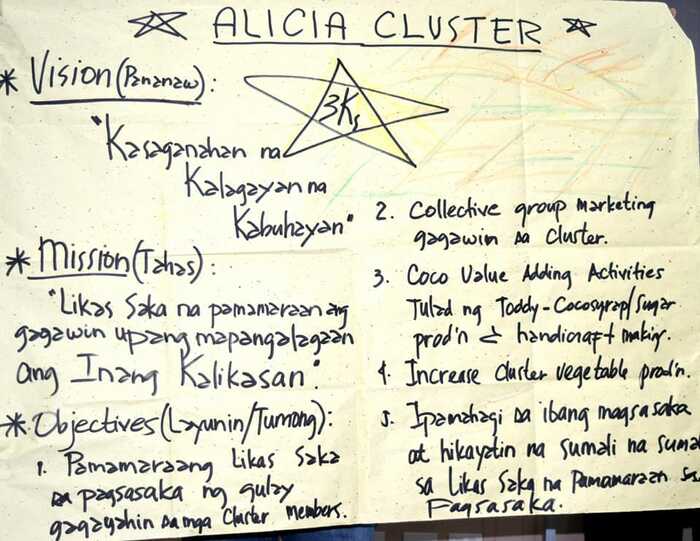 ALICIA CLUSTER
* Vision (Pananaw):
3Ks
"Kasaganahan na
Kalagayan na
Kabuhayan"
* Mission (Tahas):
"Likas Saka na pamamaraan ang
gagawin upang mapangalagaan
ang Inang Kalikasan".
* Objectives (Layunin/Tumong):
1. Pamamaraang Likas Saka
sa pagsasaka ng gulay
gagayahin sa mga Cluster Members.
2. Collective group marketing
gagawin sa Cluster.
3. Coco Value Adding Activities
Tulad ng Toddy-Cocosyrap/Sugar
prod'n & handicraft making.
4. Increase Cluster vegetable prod'n.
5. Ipamahagi sa ibang magsasaka
at hikayatin na sumali na sumali
sa Likas Saka na Pamamaraan sa
Pagsasaka.